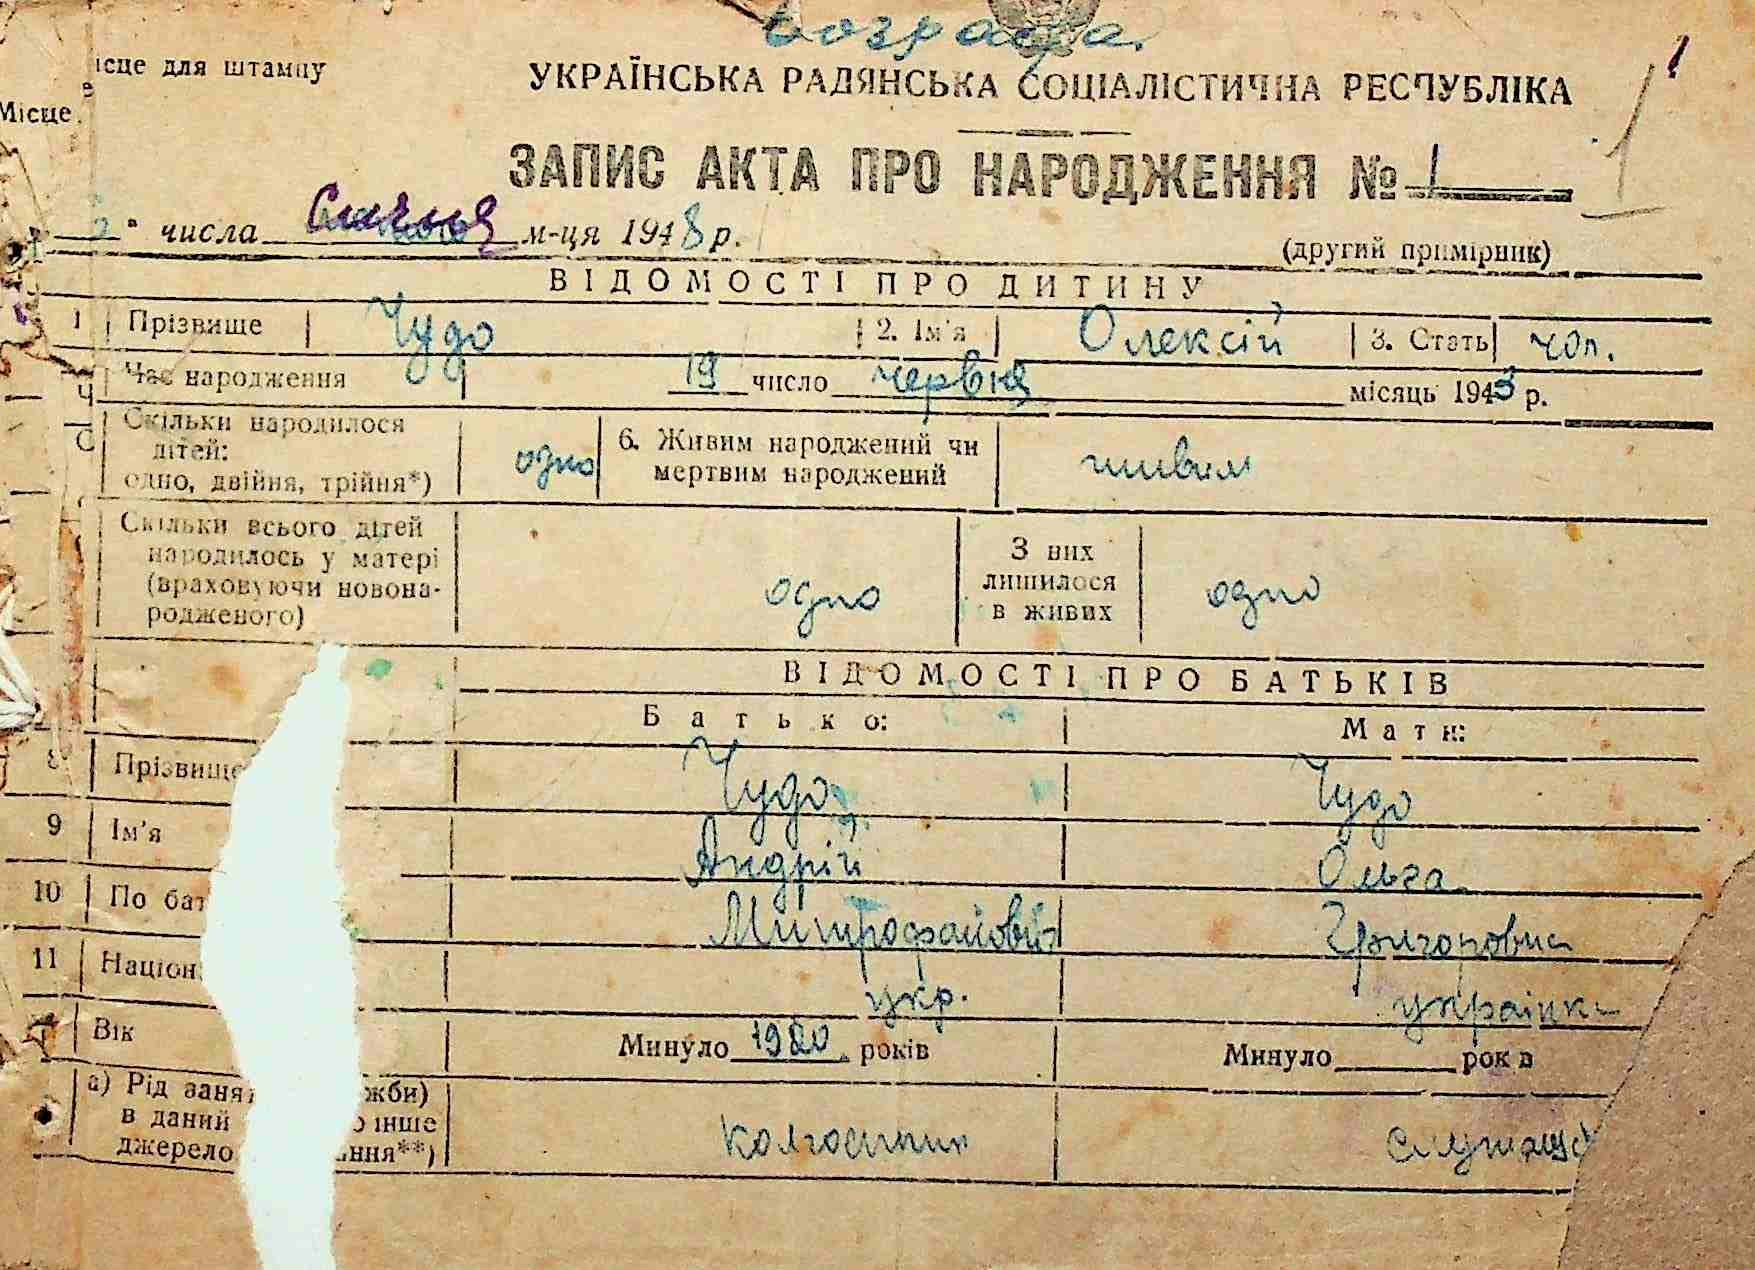 возраста
ісце для штампу
Місце
УКРАЇНСЬКА РАДЯНСЬКА СОЦІАЛІСТИЧНА РЕСПУБЛІКА
1
ЗАПИС АКТА ПРО НАРОДЖЕННЯ № 1
числа Січня м-ця 1948 р.
(другий примірник)
ВІДОМОСТІ ПРО ДИТИНУ
1 Прізвище Чудо 2. Ім'я Олексій 3. Стать чол.
Час народження 19 число червня місяць 1943 р.
Скільки народилося
дітей:
одно, двійня, трійня*) одно 6. Живим народжений чи
мертвим народжений живим
Скільки всього дітей
народилось у матері
(враховуючи новона-
родженого) одно З них
лишилося
в живих одно
ВІДОМОСТІ ПРО БАТЬКІВ
Батько: Мати:
8 Прізвище Чудо Чудо
9 Ім'я Андрій Ольга
10 По бат Митрофанович Григоровна
11 Націон укр. українка
Вік Минуло 1920 років Минуло рок в
а) Рід занят жби)
в даний о інше
джерело ання**) колгоспник служащ